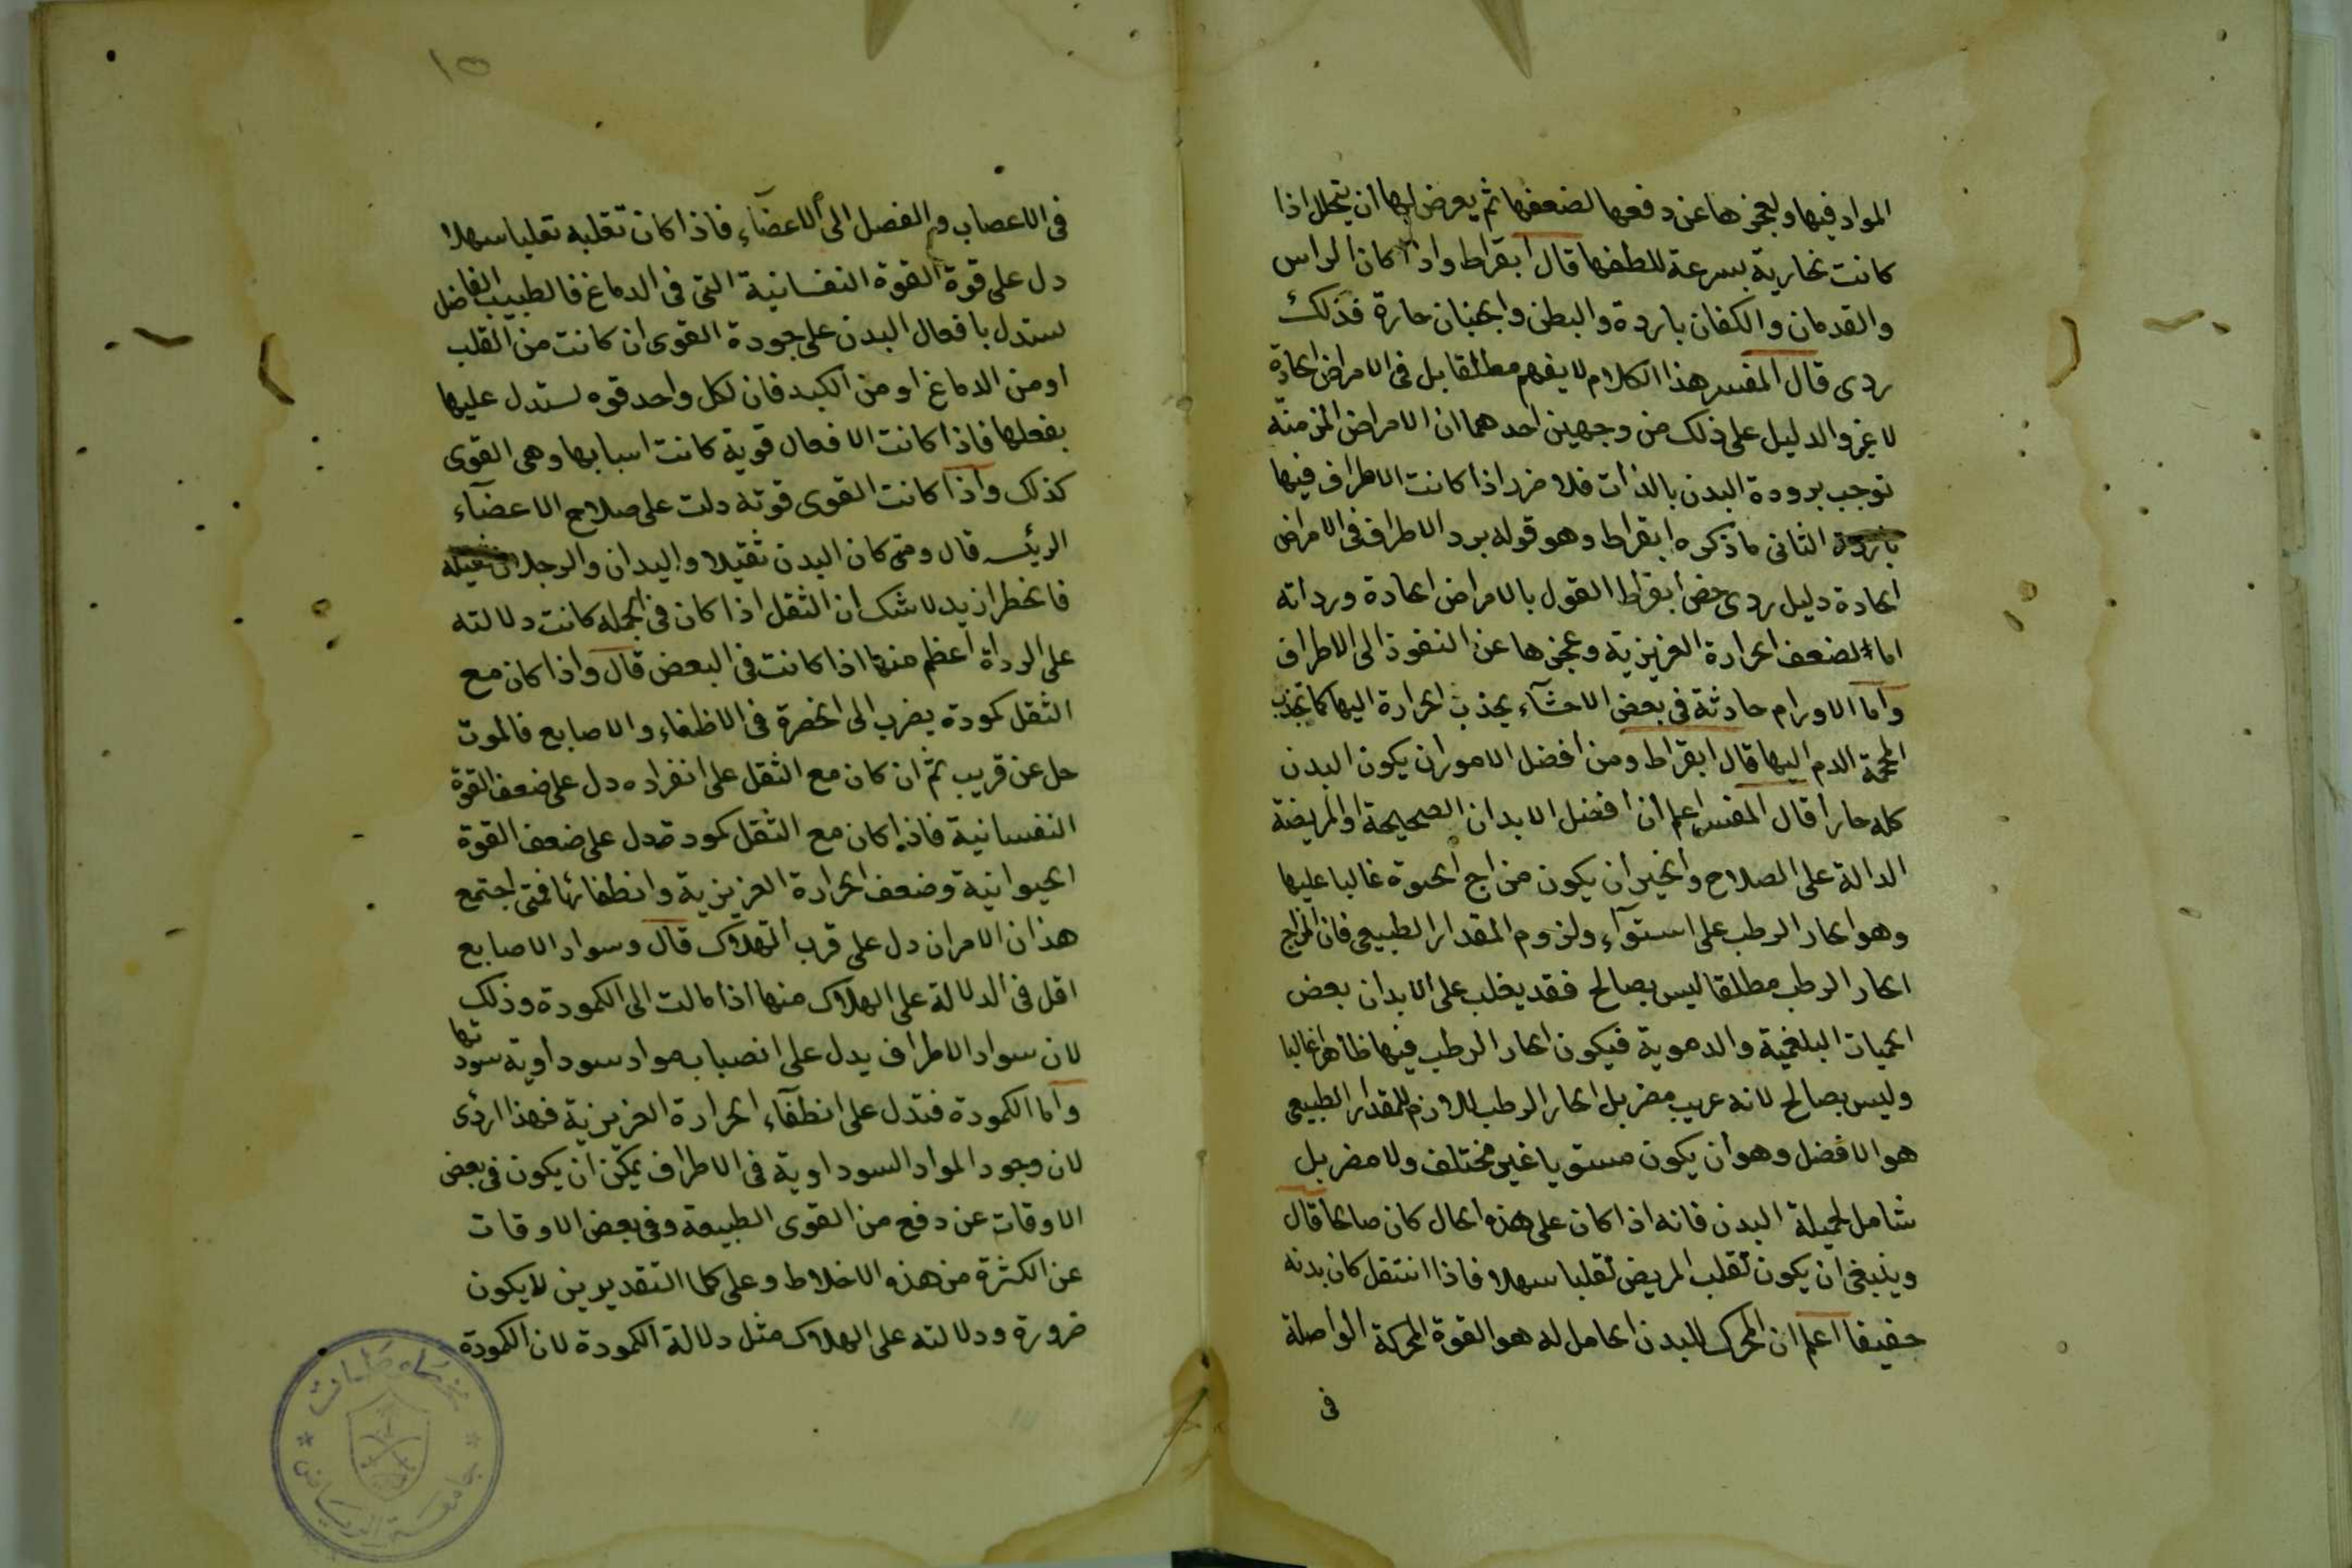 المواد فيها ولعجزها عن دفعها لضعفها ثم يعرض لها ان يتحلل اذا
كانت بخارية بسرعة للطفها قال ابقراط واذا كان الراس
والقدمان والكفان باردة والبطن والجنبان حارة فذلك
ردى قال المفسر هذا الكلام لا يفهم مطلقا بل فى الامراض الحادة
لا غير والدليل على ذلك من وجهين احدهما ان الامراض المزمنة
توجب برودة البدن بالذات فلا ضرر اذا كانت الاطراف فيها
باردة الثانى ما ذكره ابقراط وهو قوله برد الاطراف فى الامراض
الحادة دليل ردى خص ابقراط القول بالامراض الحادة ورداته
اما لضعف الحرارة الغريزية وعجزها عن النفوذ الى الاطراف
واما الاورام حادثة فى بعض الاحشآء يجذب الحرارة اليها كما تجذب
المحجمة الدم اليها قال ابقراط ومن افضل الامور ان يكون البدن
كله حارا قال المفسر اعلم ان افضل الابدان الصحيحة او المريضة
الدالة على الصلاح والخير ان يكون مزاج الحيوة غالبا عليها
وهو الحار الرطب على استوآء ولزوم المقدار الطبيعى فان المزاج
الحار الرطب مطلقا ليس بصالح فقد يغلب على الابدان بعض
الحميات البلغمية والدموية فيكون الحار الرطب فيها ظاهرا غالبا
وليس بصالح لانه غريب مضر بل الحار الرطب اللازم للمقدار الطبيعى
هو الافضل وهو ان يكون مستويا غير مختلف ولا مضر بل
شامل لجميلة البدن فانه اذا كان على هذه الحال كان صالحا قال
وينبغى ان يكون تقلب المريض تقلبا سهلا فاذا انتقل كان بدنه
خفيفا اعلم ان المحرك للبدن الحامل له هو القوة المحركة الواصلة
فى
١٥
فى الاعصاب والفصل الى الاعضآء فاذا كان تقلبه تقلبا سهلا
دل على قوة القوة النفسانية التى فى الدماغ فالطبيب الفاضل
يستدل بافعال البدن على جودة القوى ان كانت من القلب
او من الدماغ او من الكبد فان لكل واحد قوه يستدل عليها
بفعلها فاذا كانت الافعال قوية كانت اسبابها وهى القوى
كذلك واذا كانت القوى قوية دلت على صلاح الاعضآء
الرئيسه قال ومتى كان البدن ثقيلا واليدان والرجلان ثقيلة
فالخطر ازيد لا شك ان الثقل اذا كان فى الجملة كانت دلالته
على الرداة اعظم منها اذا كانت فى البعض قال واذا كان مع
الثقل كمودة يضرب الى الخضرة فى الاظفار والاصابع فالموت
حل عن قريب ثم ان كان مع الثقل على انفراده دل على ضعف القوة
النفسانية فاذا كان مع الثقل كمودة دل على ضعف القوة
الحيوانية وضعف الحرارة الغريزية وانطفائها فمتى اجتمع
هذان الامران دل على قرب الهلاك قال وسواد الاصابع
اقل فى الدلالة على الهلاك منها اذا مالت الى الكمودة وذلك
لان سواد الاطراف يدل على انصباب مواد سوداوية سودتها
واما الكمودة فتدل على انطفآء الحرارة الغريزية فهذا اردى
لان وجود المواد السوداوية فى الاطراف يمكن ان يكون فى بعض
الاوقات عن دفع من القوى الطبيعة وفى بعض الاوقات
عن الكثرة من هذه الاخلاط وعلى كلا التقديرين لا يكون
ضرورة ودلالته على الهلاك مثل دلالة الكمودة لان الكمودة
جامعة الرياض